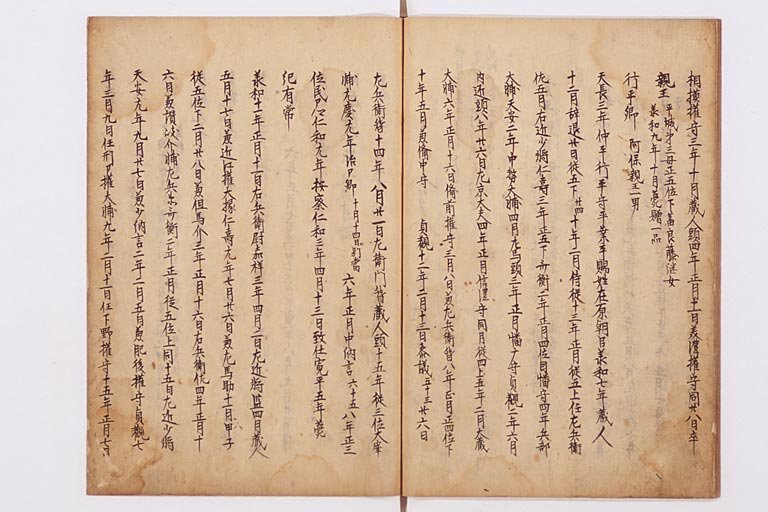 相摸權守三年十月蔵人頭四年正月十一日兼權守同廿八日卒
親王 平城第三母正五位下葛良藤継女
承和九年十月薨贈一品
行平卿 阿保親王一男
天長三年仲平行平守平業平賜姓在原朝臣承和七年蔵人
十二月辞退廿日従五下 廿四 十年二月侍従十三年正月従五上任左兵衛
佐五月右近少将仁寿三年正五下斉衡二年正月四位因幡守四年兵部
大輔天安二年中務大輔四月左馬頭三年正月播广守貞観二年六月
内近頭八月廿六日左京大夫四年正月信濃守同月従四上五年二月大蔵
大輔六年正月十六日備前權守三月八日兼左兵衛督八年正月正四位下
十年五月兼備中守 貞観十二年二月十三日参議 五十三 廿六日
左兵衛督十四年八月廿一日左衛門督蔵人頭十五年従三位大宰
帥元慶元年治P卿 十月十四日別當 六年正月中納言 六十五 八年正三
位民P々仁和元年按察仁和三年四月十三日致仕寛平五年薨
紀有常
承和十一年正月十一日右兵衛尉嘉祥三年四月二日左近将監四月蔵人
五月十七日兼近江權大掾仁寿元年七月廿六日兼左馬助十一月甲子
従五位下二月廿八日兼但馬介三年正月十六日右兵衛佐四年正月十
六日兼讃岐介 左兵衛 斉衡二年正月従五位上同十五日左近少将
天安元年九月廿七日兼少納言二年二月五日兼肥後權守貞観七
年三月九日任刑P權大輔九年二月十一日任下野權守十五年正月七日